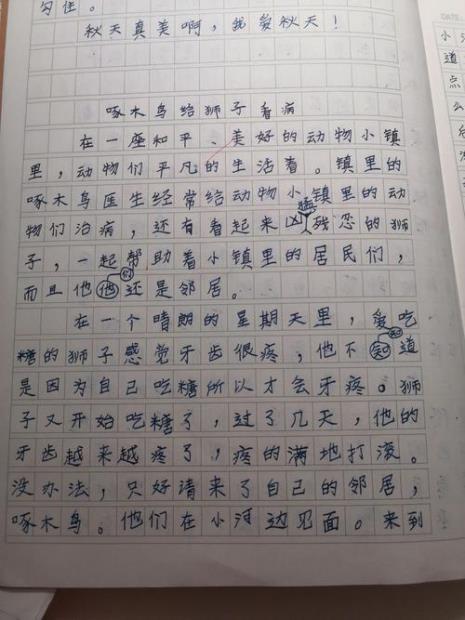 勾住。
秋天真美啊，我爱秋天！
啄木鸟给狮子看病
在一座和平、美好的动物小镇
里，动物们平凡的生活着。镇里的
啄木鸟医生经常给动物小镇里的动
物们治病，还有看起来凶猛残忍的狮
子，一起帮助着小镇里的居民们，
而且他们还是邻居。
在一个晴朗的星期天里，爱吃
糖的狮子感觉牙齿很疼，他不知道
是因为自己吃糖所以才会牙疼。狮
子又开始吃糖了，过了几天，他的
牙齿越来越疼了，疼的满地打滚。
没办法，只好请来了自己的邻居，
啄木鸟。他们在小河边见面。来到
DATE
小
道
点